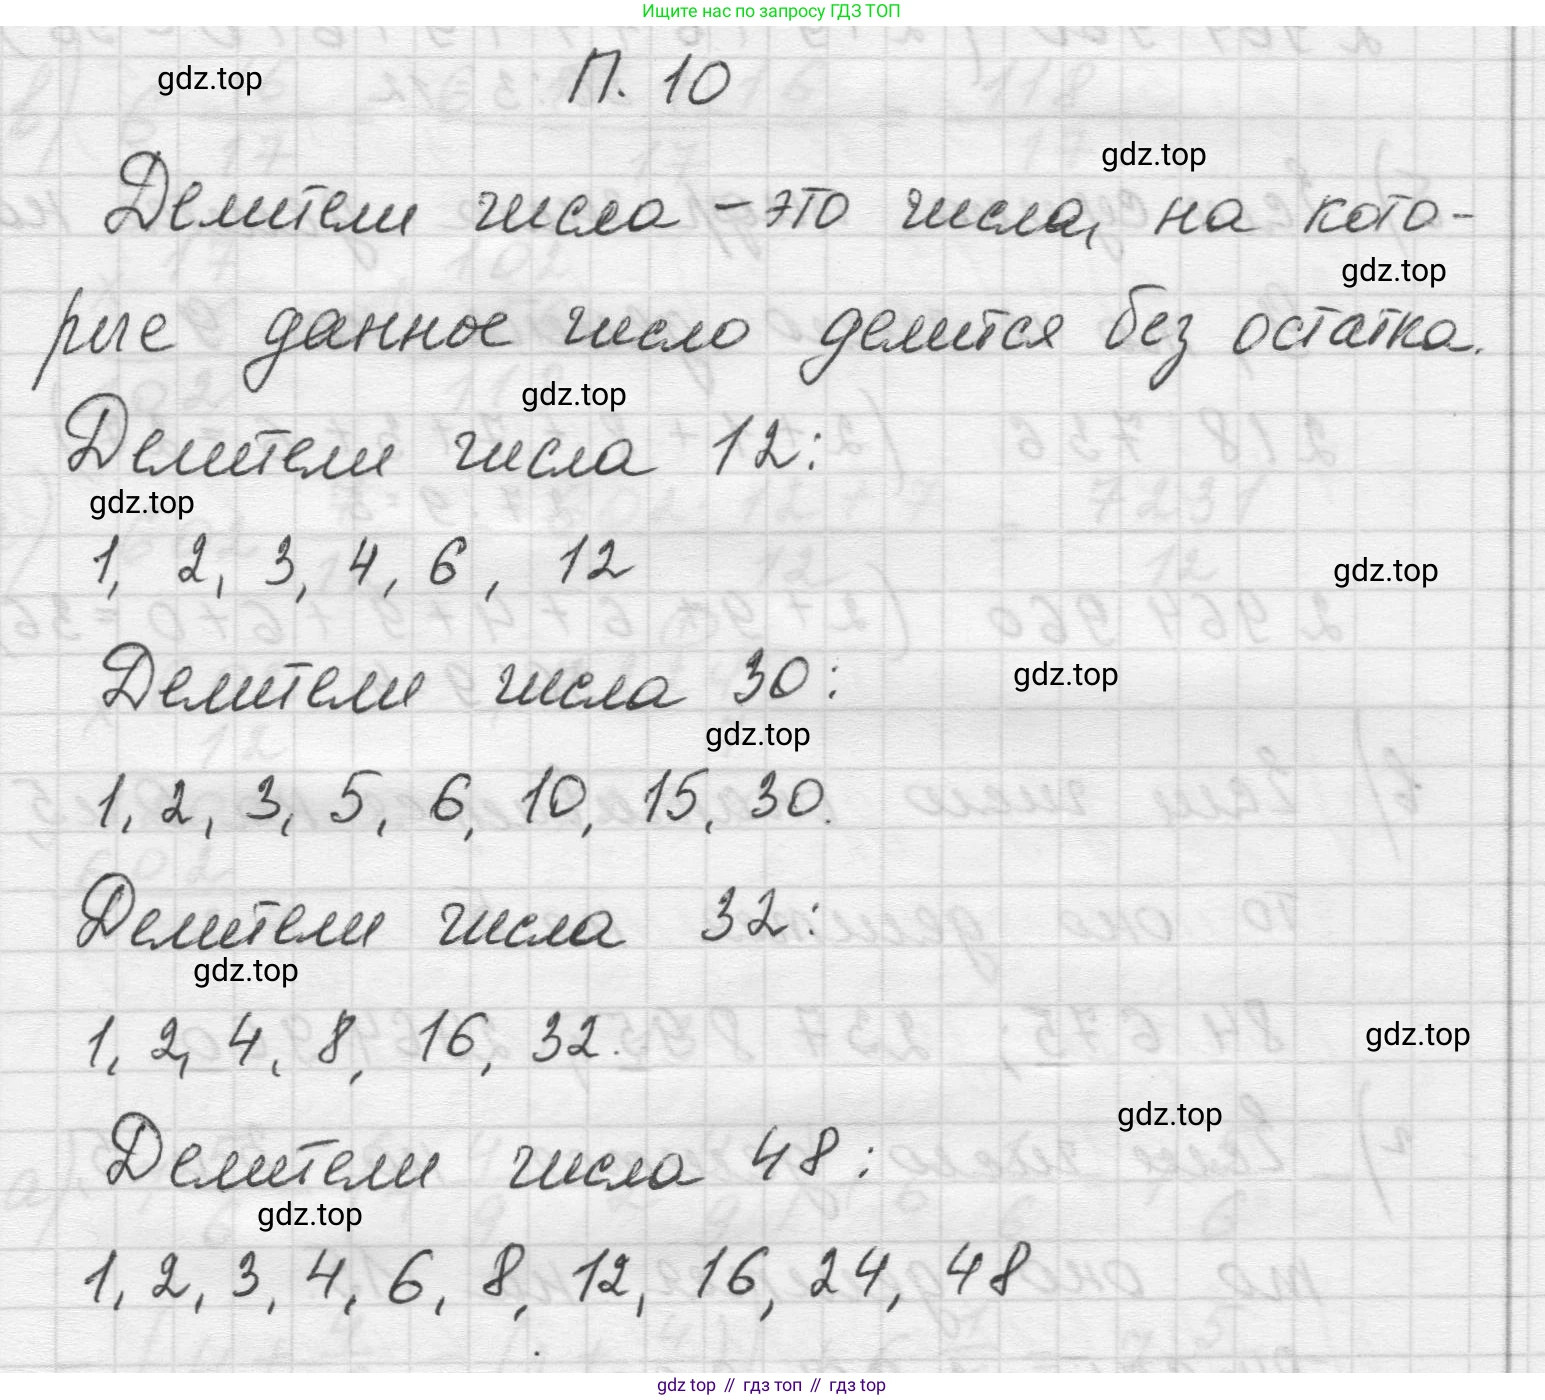 Ищите нас по запросу ГДЗ ТОП
gdz.top
П. 10
gdz.top
Делители числа – это числа, на кото-
gdz.top
рые данное число делится без остатка.
gdz.top
Делители числа 12:
gdz.top
1, 2, 3, 4, 6, 12
gdz.top
Делители числа 30:
gdz.top
gdz.top
1, 2, 3, 5, 6, 10, 15, 30.
Делители числа 32:
gdz.top
1, 2, 4, 8, 16, 32.
gdz.top
gdz.top
Делители числа 48:
gdz.top
1, 2, 3, 4, 6, 8, 12, 16, 24, 48
gdz top // гдз топ // гдз top